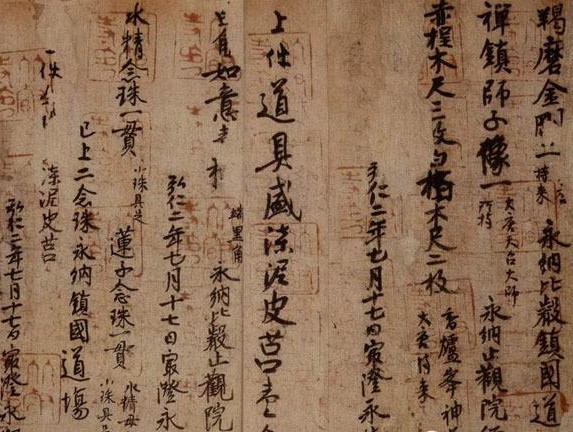 羯磨金剛二
持来
永納比叡鎮國道
禪鎮師子像一
大唐天台大師
所持
永納止觀院
赤桯木尺二枚 栢木尺二枚
香爐峯神
大唐持来
弘仁二年七月十七日最澄永
上件道具盛漆泥皮筥壹
犀角如意
斑犀角
永納比叡止觀院
弘仁二年七月十七日最澄永
水精念珠一貫
小珠具足
蓮子念珠一貫
水精母
小珠具足
已上二念珠永納鎮國道場
漆泥皮筥
弘仁二年七月十七日最澄永